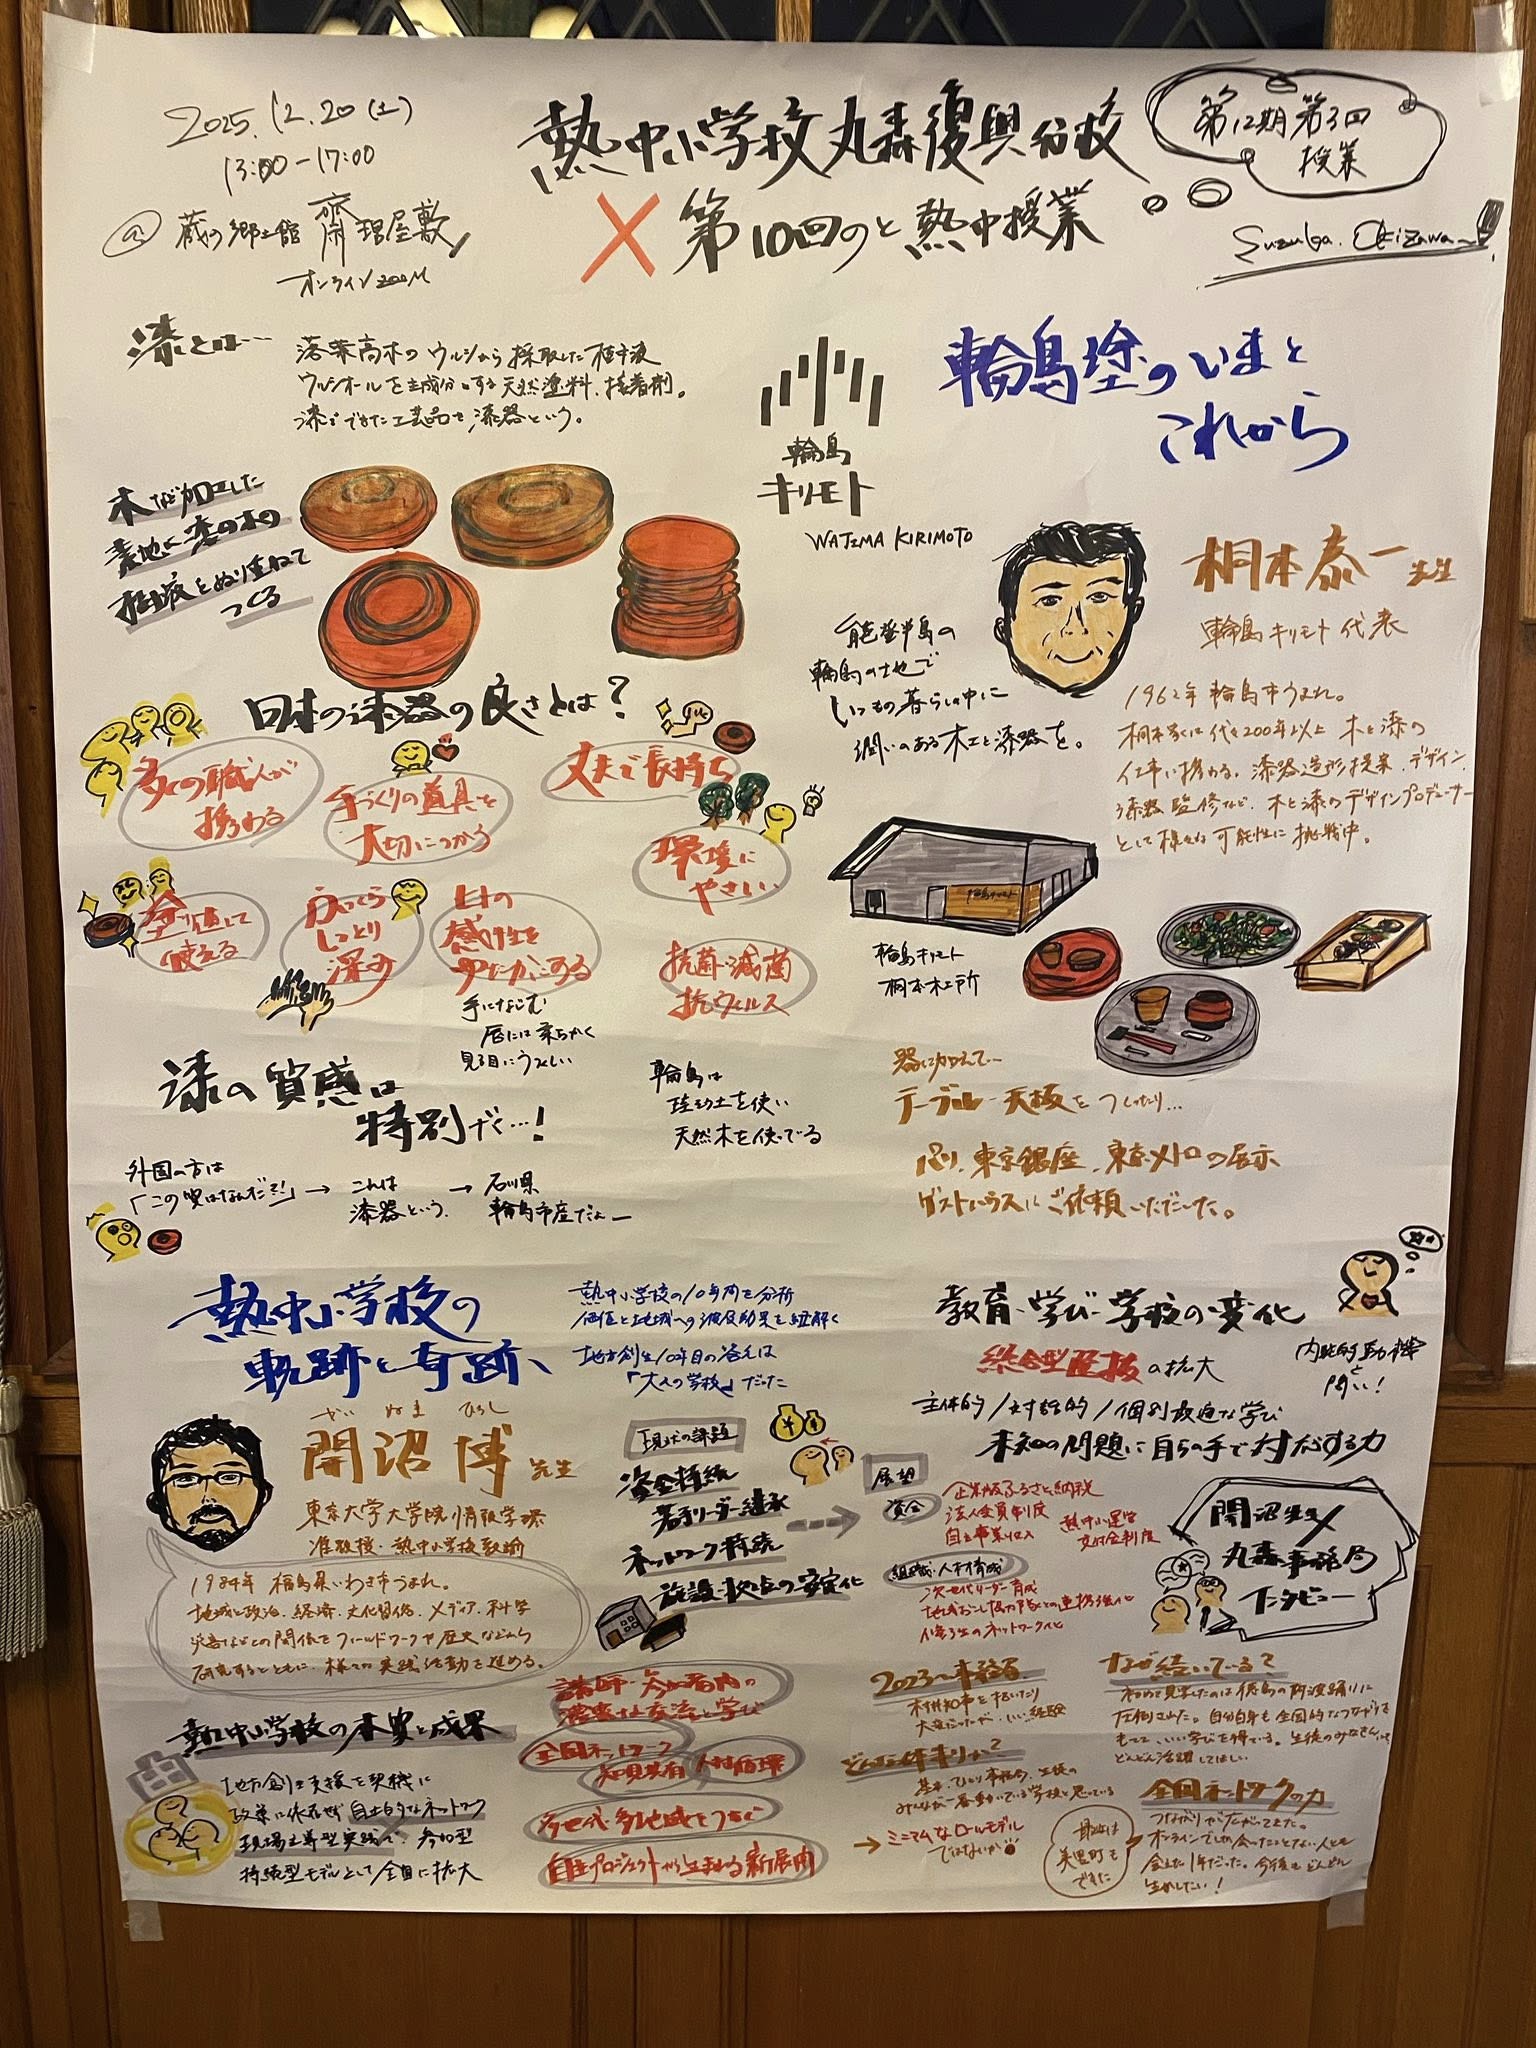 2025.12.20(土)
13:00-17:00
@ 蔵の郷土館 齋理屋敷
オンラインzoom
熱中小学校丸森復興分校
×第10回のと熱中授業
第12期第3回
授業
Suzuka.Okizawa
漆とは…
落葉高木のウルシから採取した樹液
ウルシオールを主成分とする天然塗料、接着剤。
漆でできた工芸品を漆器という。
木など加工した
素地に漆の木の
樹液をぬり重ねて
つくる
輪島
キリモト
WAJIMA KIRIMOTO
輪島塗のいまと
これから
桐本泰一先生
輪島キリモト代表
能登半島の
輪島の地で
いつもの暮らしの中に
潤いのある木工と漆器を。
1962年輪島市うまれ。
桐本家は代々200年以上 木と漆の
仕事に携わる。漆器造形提案、デザイン、
漆器監修など、木と漆のデザインプロデューサー
として様々な可能性に挑戦中。
日本の漆器の良さとは?
多くの職人が
携わる
手づくりの道具を
大切につかう
丈夫で長持ち
環境に
やさしい
使える
ふっくら
しっとり
深み
日本の
感性を
ゆたかにする
手になじむ
唇には柔らかく
見る目にうつくしい
抗菌・減菌
抗ウィルス
輪島キリモト
輪島キリモト
桐本木工所
漆の質感は
特別で…!
輪島は
珪藻土を使い
天然木を使ってる
外国の方は
「この質はなんだ?!」→これは
漆器という→石川県
輪島市産だよー
器に加えて…
テーブル・天板をつくったり…
パリ、東京銀座、東京メトロの展示
ゲストハウスにご依頼いただいた。
熱中小学校の
軌跡と奇跡
熱中小学校の10年間を分析
価値と地域への波及効果を紐解く
地方創生10年目の答えは
「大人の学校」だった
かい ぬま ひろし
開沼 博 先生
東京大学大学院情報学環
准教授・熱中小学校教諭
1984年 福島県いわき市うまれ。
地域と政治、経済、文化習俗、メディア、科学
災害などとの関係をフィールドワークや歴史などから
研究するとともに、様々な実践活動を進める。
現状の課題
資金持続
若手リーダー継承
ネットワーク持続
施設・拠点の安定化
展望
資金
企業版ふるさと納税
法人会員制度
自主事業収入
熱中小運営
交付金制度
組織・人材育成
次世代リーダー育成
地域おこし協力隊との連携強化
修了生のネットワーク化
教育・学び・学校の変化
総合型選抜の拡大
内発的動機
と
問い!
主体的/対話的/個別最適な学び
未知の問題に自らの手で対応する力
開沼先生×
丸森事務局
インタビュー
熱中小学校の本質と成果
地方創生支援を契機に
政策に依存せず自立的なネットワーク
現場主導型実践で、参加型
持続型モデルとして全国に拡大
講師・参加者間の
濃密な交流と学び
全国ネットワーク
知見共有 人材循環
多世代・多地域をつなぐ
自主プロジェクトから生まれる新展開
2023〜事務局
大変だったが、いい経験
どんな体制か?
みんなが一番動いている学校と思っている
→ミニマムなロールモデル
ではないか
なぜ続いている?
初めて見学したのは徳島の阿波踊りに
圧倒された。自分自身も全国的なつながりを
もてて、いい学びを得ている。生徒のみなさん
どんどん活躍してほしい
全国ネットワークの力
つながりが広がってきた。
オンラインでしか会ったことない人とも
会えた1年だった。今後もどんどん
生かしたい!